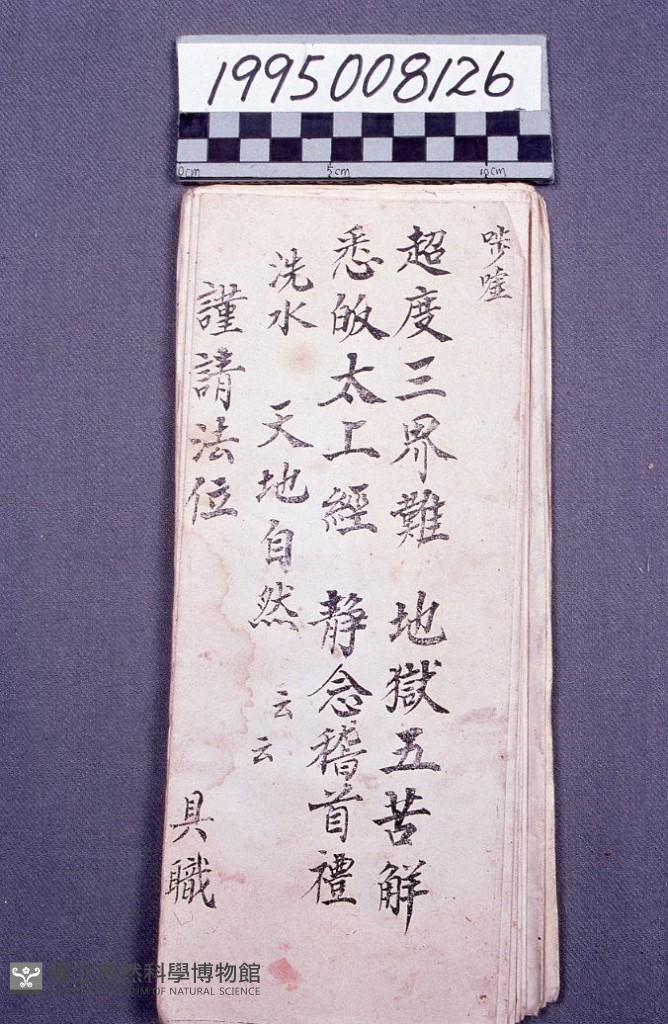 1995008126
0cm 5cm 10cm
嘘
超度三界難 地獄五苦解
悉皈太上經 静念稽首禮
洗水 天地自然 云云
謹請法位 具職
國立自然科學博物館
NATIONAL MUSEUM OF NATURAL SCIENCE